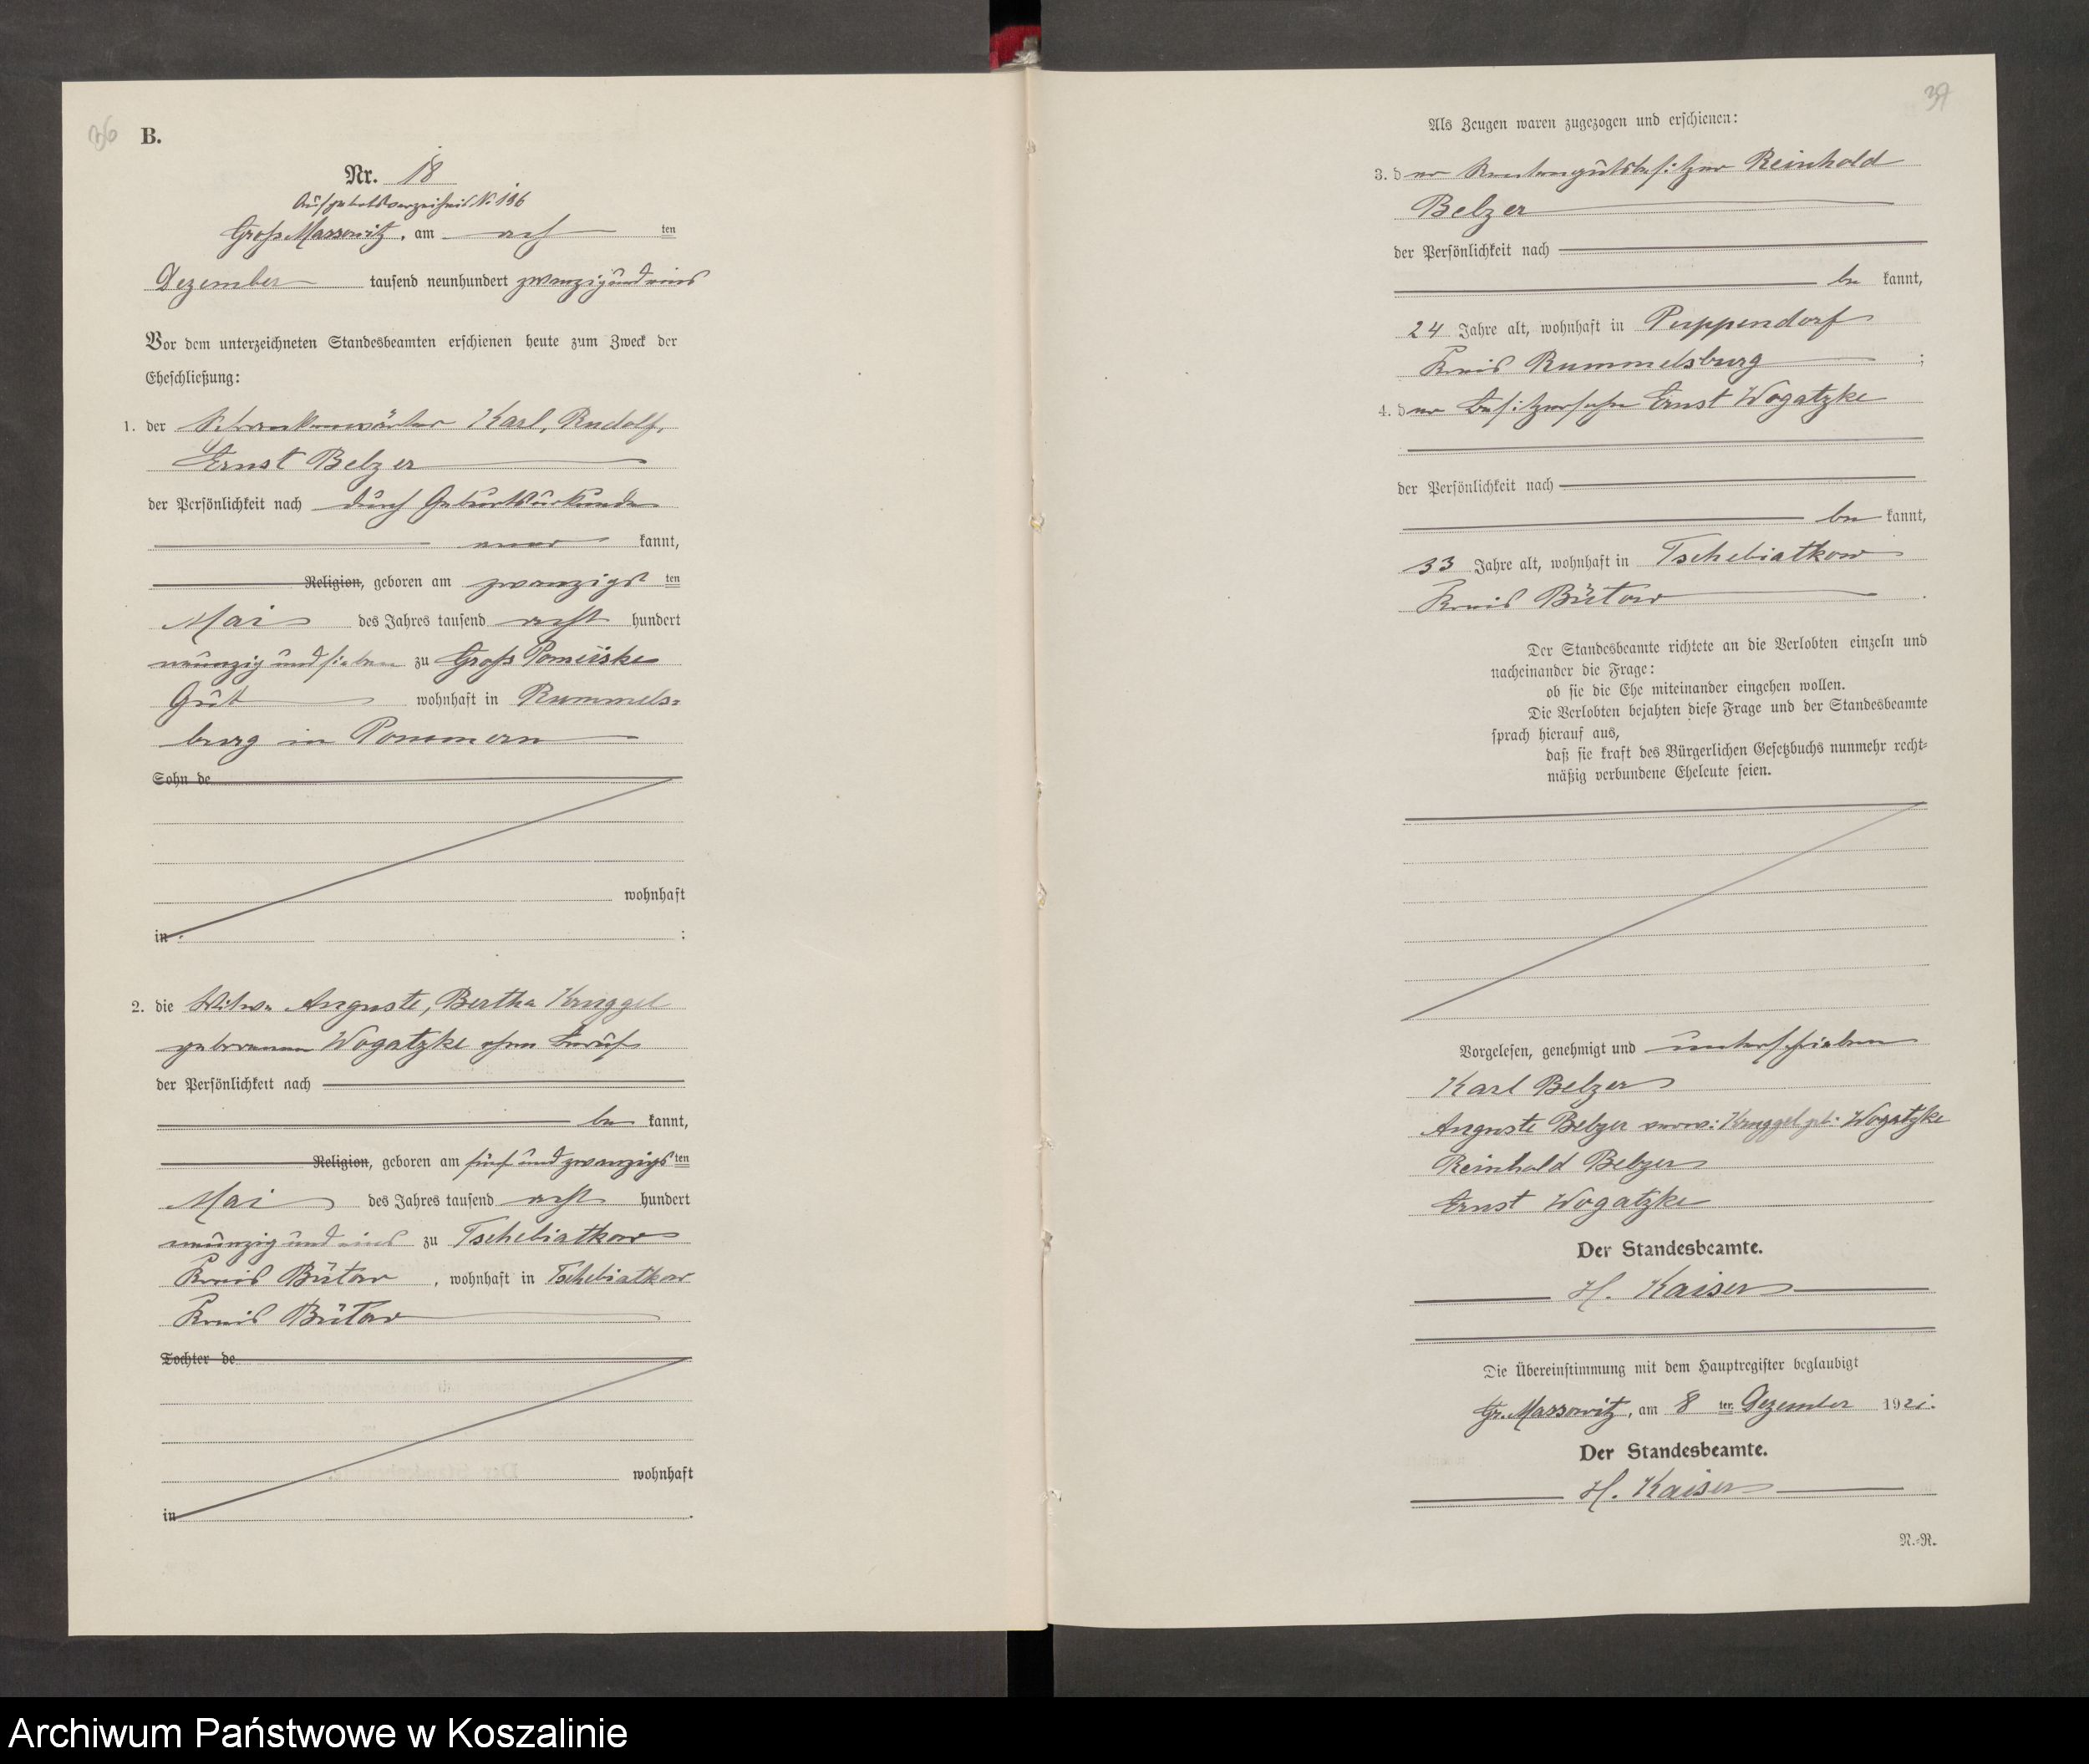 36
B.
Nr. 18
Aufgebotsverzeichnis N. 186
Groß Massowitz, am ach ten
Dezember tausend neunhundert zwanzigundeins
Vor dem unterzeichneten Standesbeamten erschienen heute zum Zweck der
Eheschließung:
1. der Schrankenwärter Karl, Rudolf,
Ernst Belzer
der Persönlichkeit nach durch Geburtsurkunde
aner kannt,
Religion, geboren am zwanzigst ten
Mai des Jahres tausend acht hundert
neunzig und sieben zu Groß Pomeiske
Gut wohnhaft in Rummels=
burg in Pommern
Sohn de
wohnhaft
in ;
2. die Witwe Auguste, Bertha Kruggel
geborenen Wogatzke ohne Beruf
der Persönlichkeit nach
be kannt,
Religion, geboren am fünf und zwanzigs ten
Mai des Jahres tausend acht hundert
neunzig und eins zu Tschebiatkow
Kreis Bütow, wohnhaft in Tschebiatkow
Kreis Bütow
Tochter de
wohnhaft
in .
37
Als Zeugen waren zugezogen und erschienen:
3. der Rentengutsbesitzer Reinhold
Belzer
der Persönlichkeit nach
be kannt,
24 Jahre alt, wohnhaft in Puppendorf
Kreis Rummelsburg ;
4. der Besitzersohn Ernst Wogatzke
der Persönlichkeit nach
be kannt,
33 Jahre alt, wohnhaft in Tschebiatkow
Kreis Bütow .
Der Standesbeamte richtete an die Verlobten einzeln und
nacheinander die Frage:
ob sie die Ehe miteinander eingehen wollen.
Die Verlobten bejahten diese Frage und der Standesbeamte
sprach hierauf aus,
daß sie kraft des Bürgerlichen Gesetzbuchs nunmehr recht=
mäßig verbundene Eheleute seien.
Vorgelesen, genehmigt und unterschrieben
Karl Belzer
Auguste Belzer verw: Kruggel geb: Wogatzke
Reinhold Belzer
Ernst Wogatzke
Der Standesbeamte.
H. Kaiser
Die Übereinstimmung mit dem Hauptregister beglaubigt
Gr. Massowitz, am 8 ten Dezember 1921.
Der Standesbeamte.
H. Kaiser
N.=R.
Archiwum Państwowe w Koszalinie